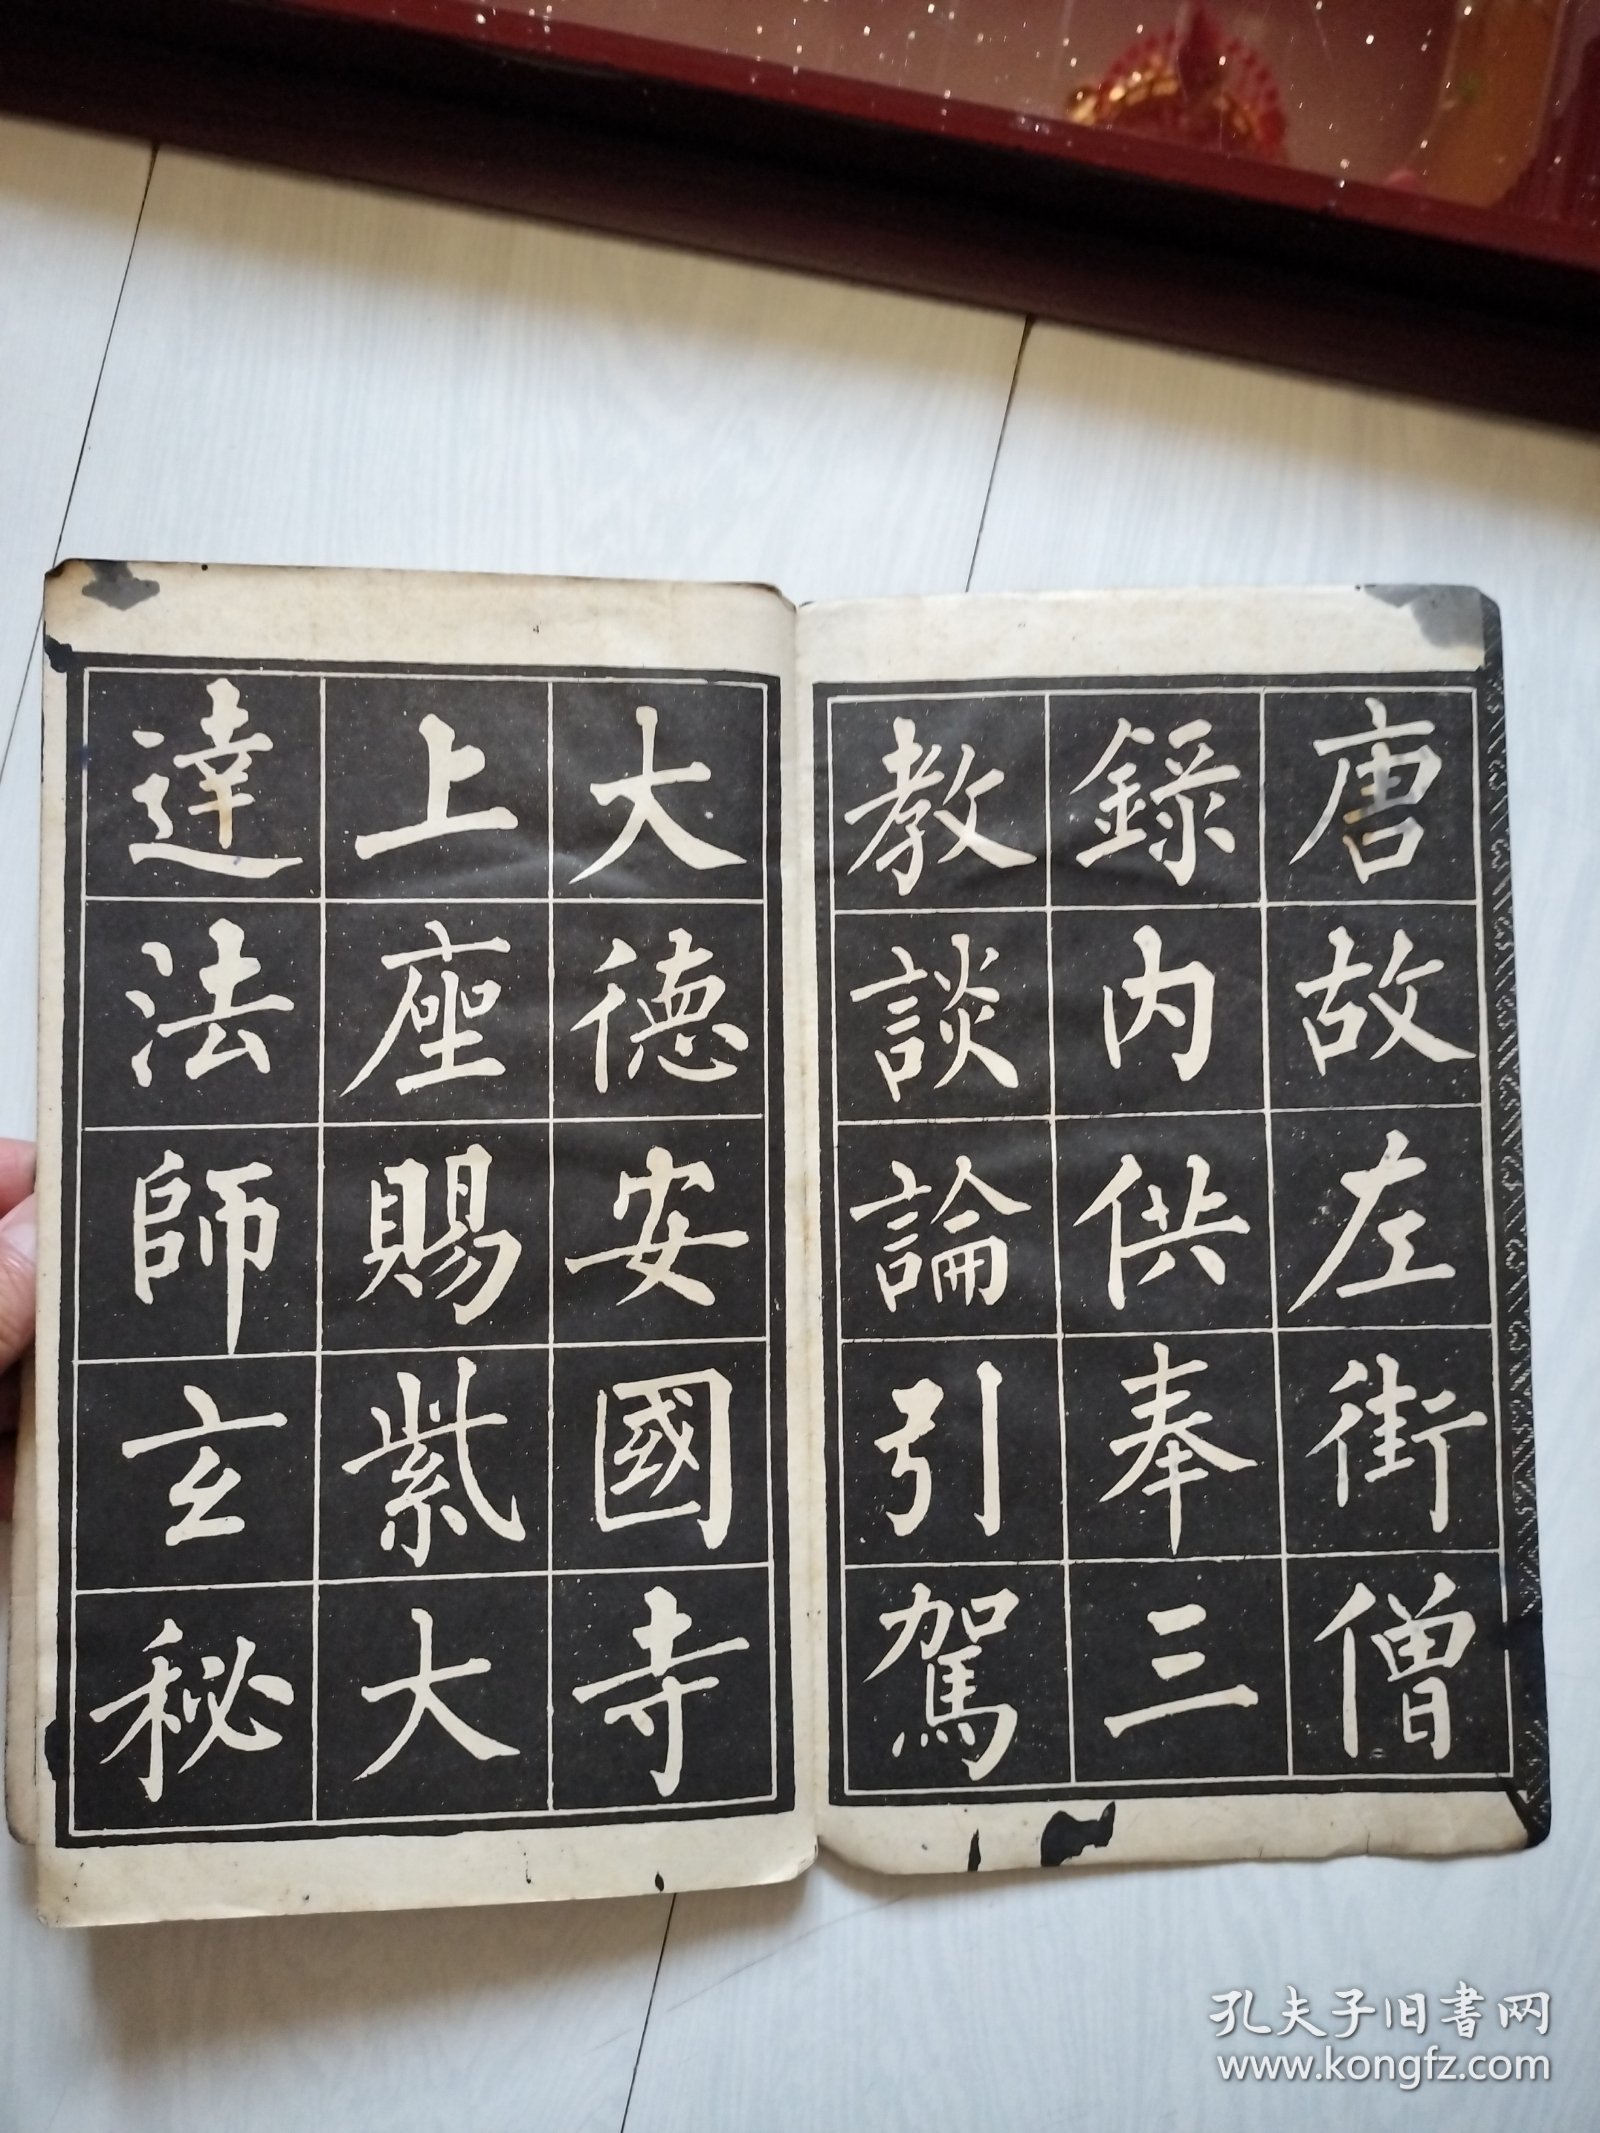 唐故左街僧
錄內供奉三
教談論引駕
大德安國寺
上座賜紫大
達法師玄秘
孔夫子旧書网
www.kongfz.com